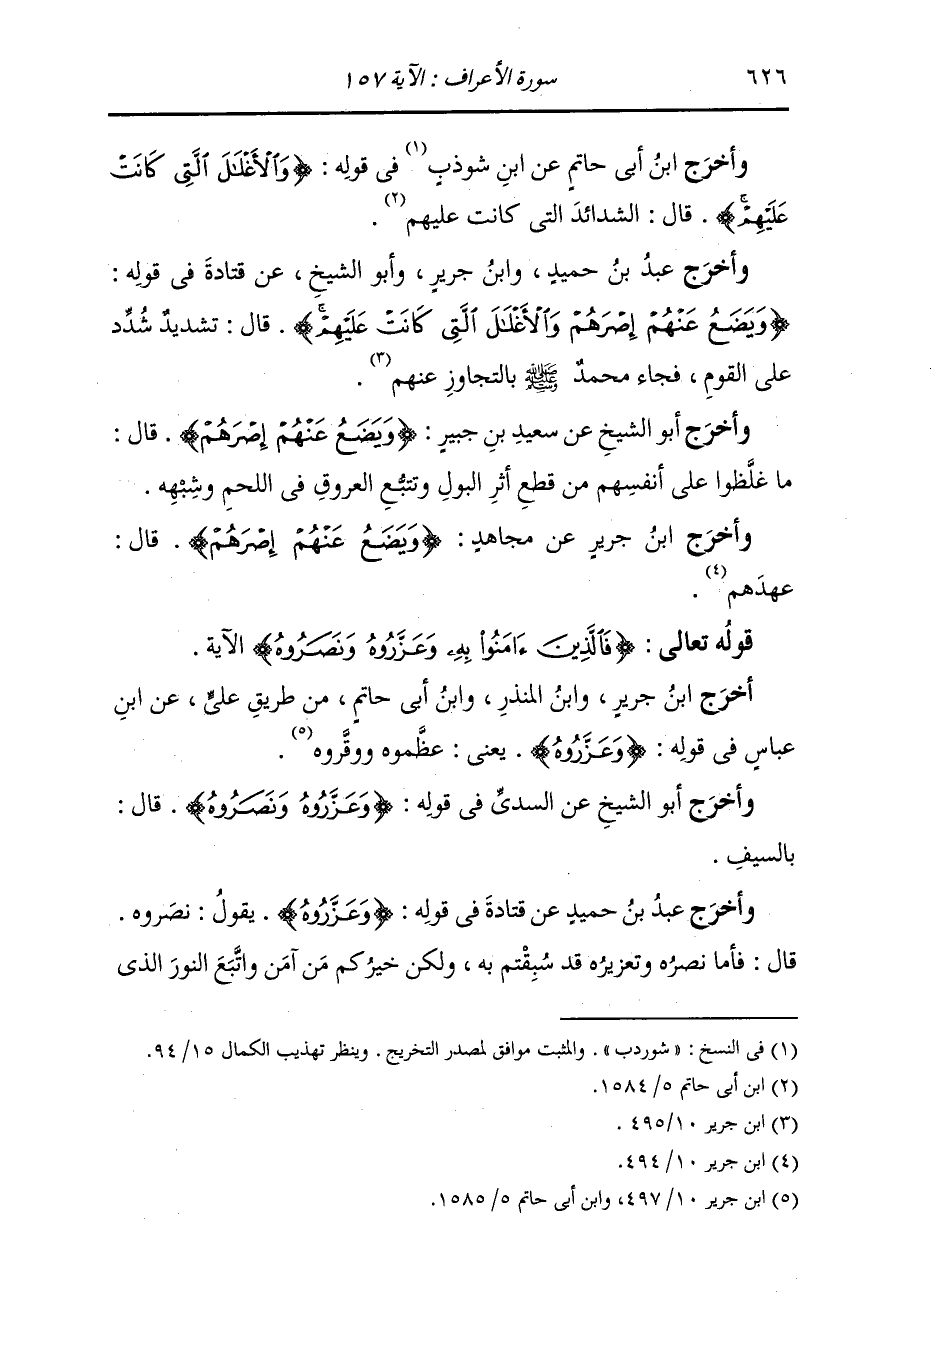 ٦٢٦ سورة الأعراف : الآية ١٥٧
وأخرَج ابنُ أبى حاتمٍ عن ابنِ شوذبٍ(١) فى قولِه : ﴿وَٱلْأَغْلَٰلَ ٱلَّتِى كَانَتْ
عَلَيْهِمْۚ﴾ . قال : الشدائدَ التى كانت عليهم(٢) .
وأخرَج عبدُ بنُ حميدٍ ، وابنُ جريرٍ ، وأبو الشيخِ ، عن قتادةَ فى قولِه :
﴿وَيَضَعُ عَنْهُمْ إِصْرَهُمْ وَٱلْأَغْلَٰلَ ٱلَّتِى كَانَتْ عَلَيْهِمْۚ﴾ . قال : تشديدٌ شُدِّد
على القومِ ، فجاء محمدٌ ﷺ بالتجاوزِ عنهم(٣) .
وأخرَج أبو الشيخِ عن سعيدِ بنِ جبيرٍ : ﴿وَيَضَعُ عَنْهُمْ إِصْرَهُمْ﴾ . قال :
ما غلَّظوا على أنفسِهم من قطعِ أثرِ البولِ وتتبُّعِ العروقِ فى اللحمِ وشِبْهِه .
وأخرَج ابنُ جريرٍ عن مجاهدٍ : ﴿وَيَضَعُ عَنْهُمْ إِصْرَهُمْ﴾ . قال :
عهدَهم(٤) .
قولُه تعالى : ﴿فَٱلَّذِينَ ءَامَنُوا۟ بِهِۦ وَعَزَّرُوهُ وَنَصَرُوهُ﴾ الآية .
أخرَج ابنُ جريرٍ ، وابنُ المنذرِ ، وابنُ أبى حاتمٍ ، من طريقِ علىٍّ ، عن ابنِ
عباسٍ فى قولِه : ﴿وَعَزَّرُوهُ﴾ . يعنى : عظَّموه ووقَّروه(٥) .
وأخرَج أبو الشيخِ عن السدىِّ فى قولِه : ﴿وَعَزَّرُوهُ وَنَصَرُوهُ﴾ . قال :
بالسيفِ .
وأخرَج عبدُ بنُ حميدٍ عن قتادةَ فى قولِه : ﴿وَعَزَّرُوهُ﴾ . يقولُ : نصَروه .
قال : فأما نصرُه وتعزيرُه قد سُبِقْتم به ، ولكن خيرُكم مَن آمَن واتَّبَعَ النورَ الذى
(١) فى النسخ : « شوردب » . والمثبت موافق لمصدر التخريج . وينظر تهذيب الكمال ١٥/ ٩٤.
(٢) ابن أبى حاتم ٥/ ١٥٨٤.
(٣) ابن جرير ١٠/ ٤٩٥ .
(٤) ابن جرير ١٠/ ٤٩٤.
(٥) ابن جرير ١٠/ ٤٩٧، وابن أبى حاتم ٥/ ١٥٨٥.